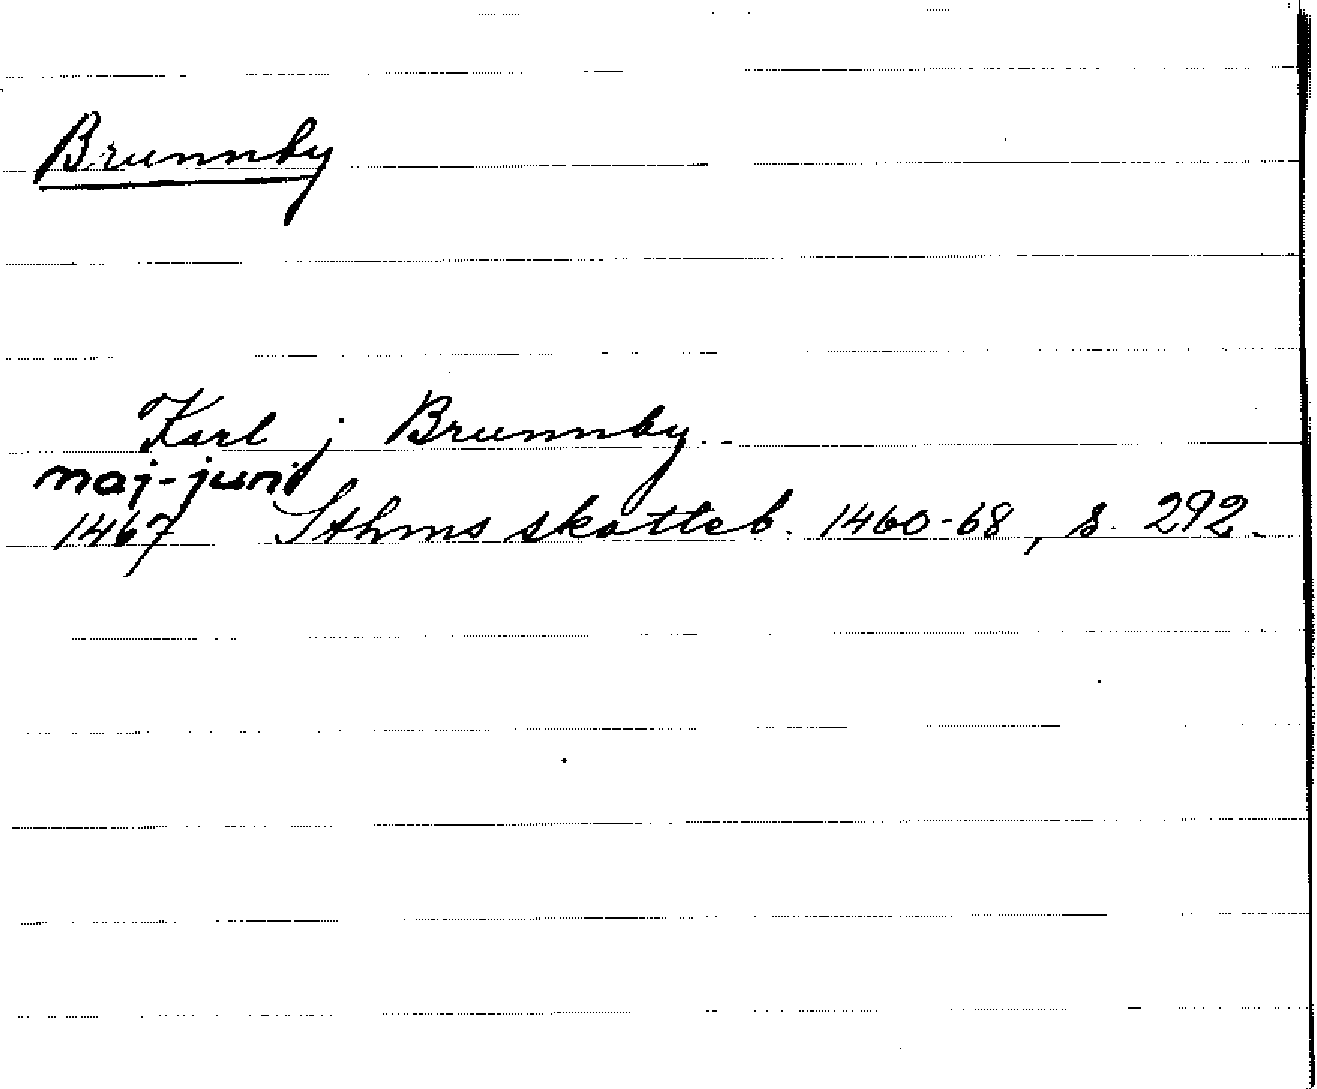 Brunnby
Karl j Brunnby
maj-juni
1467 Sthms skatteb. 1460-68, s. 292.